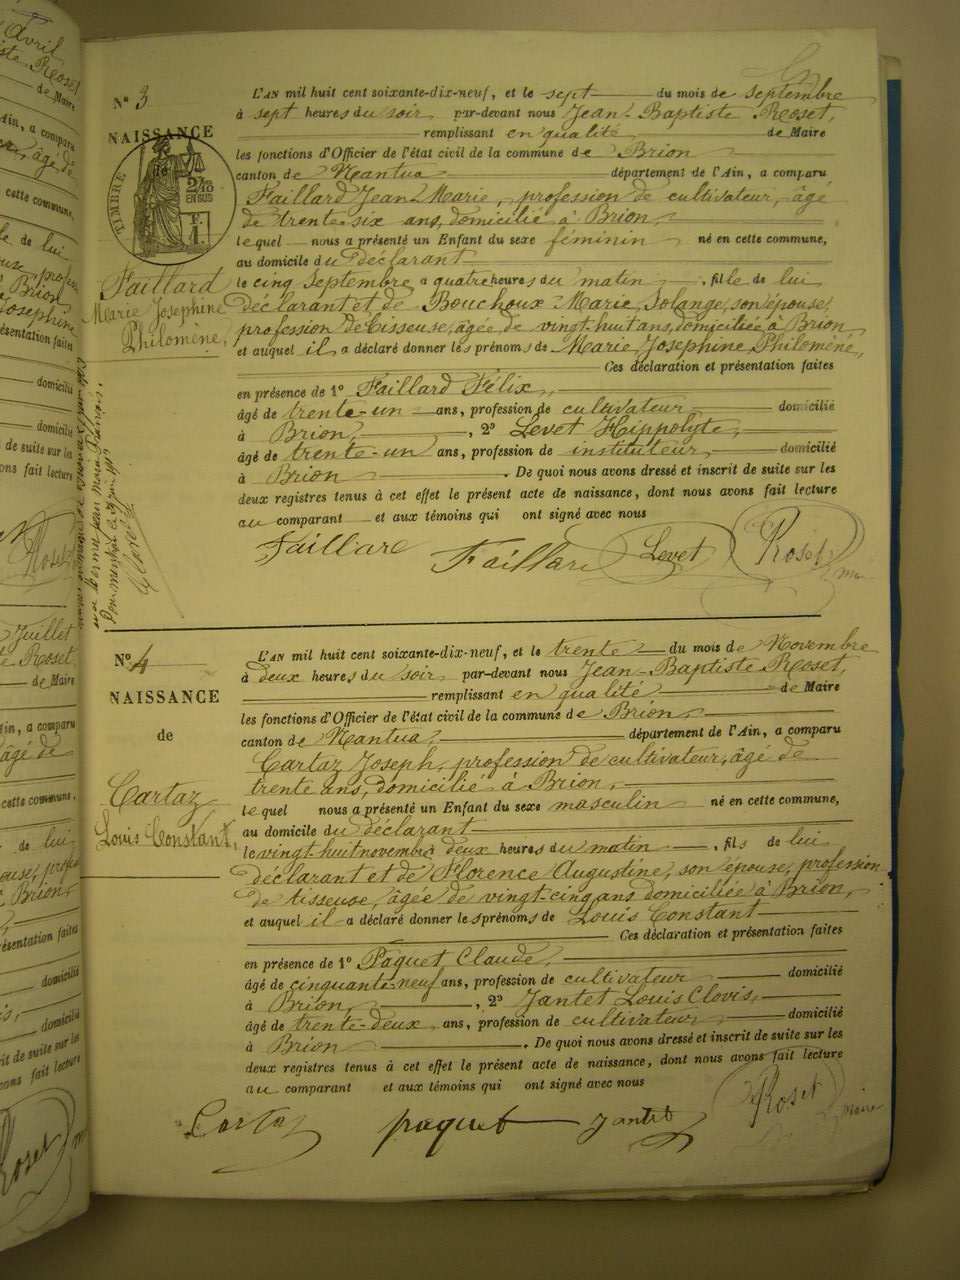 N° 3
NAISSANCE
de
TIMBRE
2/10
EN SUS
Faillard
Marie Josephine
Philomène,
L'AN mil huit cent soixante-dix-neuf, et le sept du mois de septembre
à sept heures du soir par-devant nous Jean-Baptiste Roset,
remplissant en qualité de Maire
les fonctions d'Officier de l'état civil de la commune de Brion
canton de Nantua département de l'Ain, a comparu
Faillard Jean Marie, profession de cultivateur, âgé
de trente six ans, domicilié à Brion,
lequel nous a présenté un Enfant du sexe féminin né en cette commune,
au domicile du déclarant
le cinq Septembre à quatre heures du matin, fille de lui
déclarant et de Bouchoux Marie Solange, son épouse,
profession de tisseuse, âgée de vingt huit ans, domiciliée à Brion
et auquel il a déclaré donner les prénoms de Marie Josephine Philomène,
Ces déclaration et présentation faites
en présence de 1° Faillard Félix,
âgé de trente-un ans, profession de cultivateur domicilié
à Brion, 2° Levet Hippolyte,
âgé de trente-un ans, profession de instituteur, domicilié
à Brion. De quoi nous avons dressé et inscrit de suite sur les
deux registres tenus à cet effet le présent acte de naissance, dont nous avons fait lecture
au comparant et aux témoins qui ont signé avec nous
Faillard Faillard Levet Roset
N° 4
NAISSANCE
de
Cartaz
Louis Constant,
L'AN mil huit cent soixante-dix-neuf, et le trente du mois de Novembre
à deux heures du soir, par-devant nous Jean-Baptiste Roset,
remplissant en qualité de Maire
les fonctions d'Officier de l'état civil de la commune de Brion,
canton de Nantua, département de l'Ain, a comparu
Cartaz Joseph, profession de cultivateur, âgé de
trente ans, domicilié à Brion,
lequel nous a présenté un Enfant du sexe masculin né en cette commune,
au domicile du déclarant
le vingt huit novembre deux heures du matin, fils de lui
déclarant et de Florence Augustine, son épouse, profession
de tisseuse, âgée de vingt-cinq ans domiciliée à Brion,
et auquel il a déclaré donner les prénoms de Louis Constant
Ces déclaration et présentation faites
en présence de 1° Paquet Claude,
âgé de cinquante-neuf ans, profession de cultivateur domicilié
à Brion, 2° Jantet Louis Clovis,
âgé de trente-deux ans, profession de cultivateur domicilié
à Brion. De quoi nous avons dressé et inscrit de suite sur les
deux registres tenus à cet effet le présent acte de naissance, dont nous avons fait lecture
au comparant et aux témoins qui ont signé avec nous
Cartaz paquet Jantet Roset maire